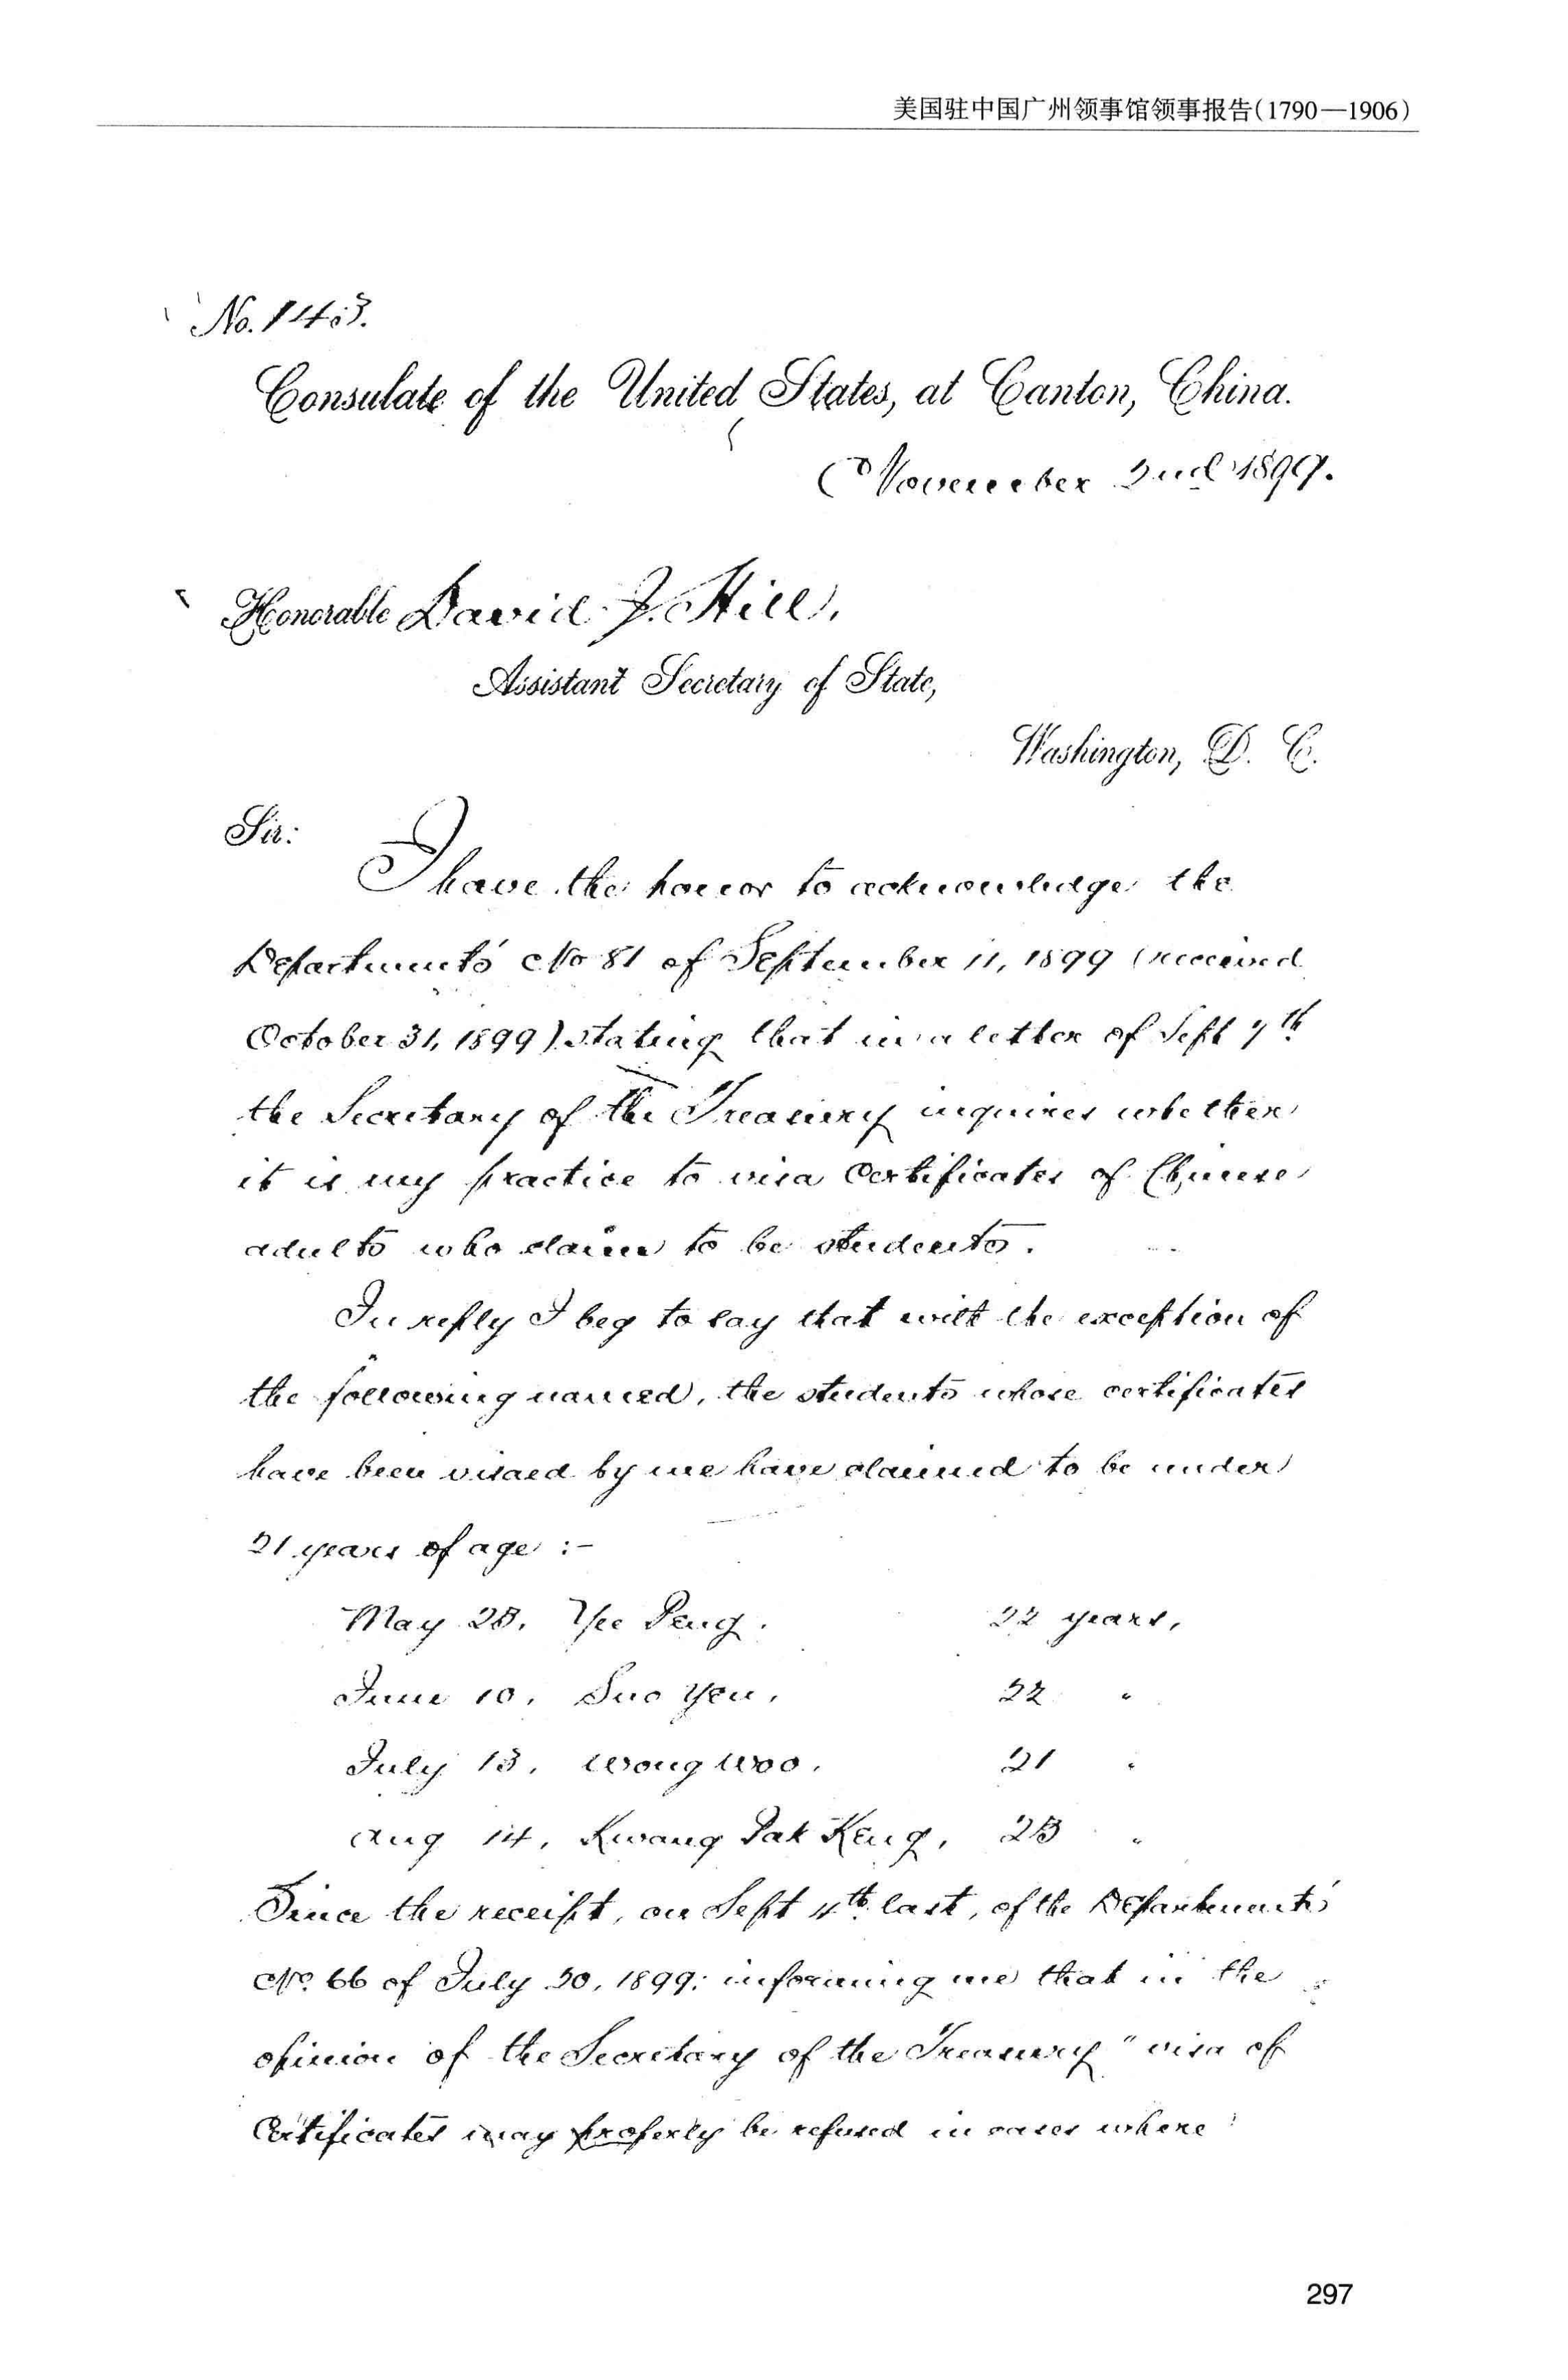 美国驻中国广州领事馆领事报告(1790—1906)
No. 143.
Consulate of the United States, at Canton, China.
November 2nd 1899.
Honorable David J. Hill,
Assistant Secretary of State,
Washington, D. C.
Sir:
I have the honor to acknowledge the
Department's No 81 of September 11, 1899 (received
October 31, 1899) stating that in a letter of Sept 7th
the Secretary of the Treasury inquires whether
it is my practice to visa Certificates of Chinese
adults who claim to be students.
In reply I beg to say that with the exception of
the following named, the students whose certificates
have been visaed by me have claimed to be under
21 years of age :-
May 23, Yee Peng. 22 years,
June 10, Suo Yen, 22 "
July 13, Wong Woo, 21 "
Aug 14, Kwang Pak Keng, 23 "
Since the receipt, on Sept 4th last, of the Department's
No. 66 of July 20, 1899; informing me that in the
opinion of the Secretary of the Treasury "visa of
Certificates may properly be refused in cases where
297